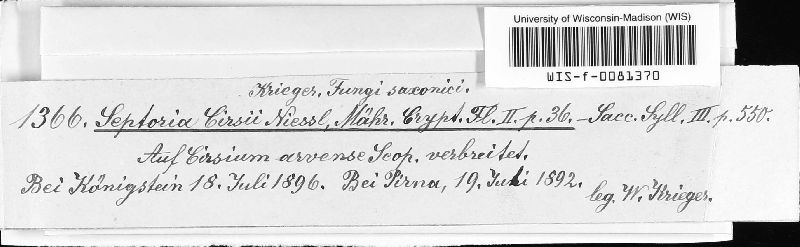 University of Wisconsin-Madison (WIS)
WIS-f-0081370
Krieger, Fungi saxonici.
1366. Septoria Cirsii Niessl, Mähr. Crypt. Fl. II. p. 36. - Sacc. Syll. III. p. 550.
Auf Cirsium arvense Scop. verbreitet.
Bei Königstein 18. Juli 1896. Bei Pirna, 19. Juli 1892.
leg. W. Krieger.